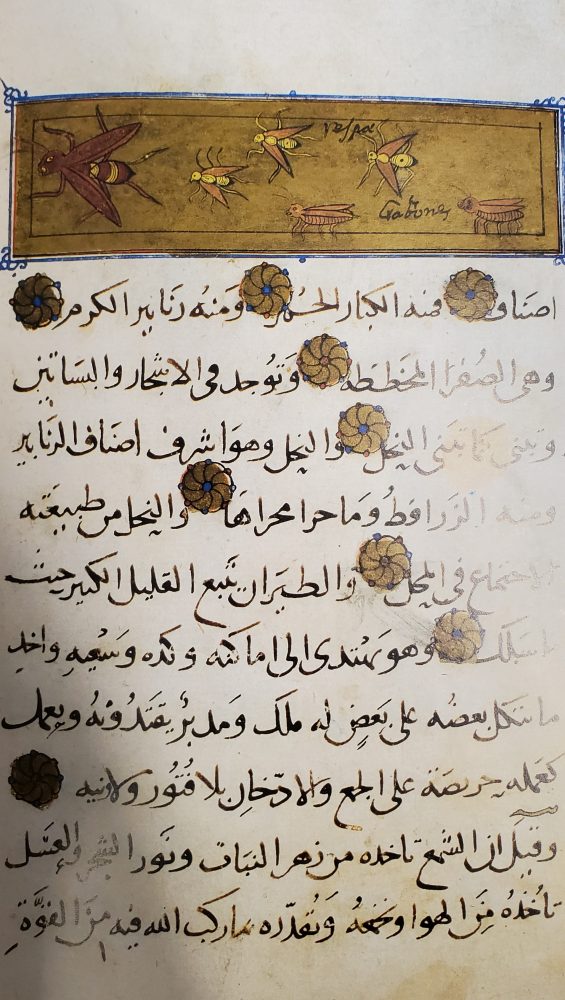 vespa
Gabone
اصناف فمنه الكبار الحمر ومنه زنابير الكرم
وهى الصفرا المخططه وتوجد فى الاشجار والبساتين
وتبنى كما تبنى النحل والنحل وهو اشرف اصناف الزنابير
ومنه الزراقط وما جرا مجراها والنحل من طبيعته
الاجتماع فى المحل والطيران يتبع القليل الكبير حيث
اسلك وهو يهتدى الى اماكنه وكده وسعيه واخذ
ما يتكل بعضه على بعض له ملك ومدبر يقتدونه ويعمل
كعمله حريصة على الجمع والادخار بلا فتور ولا ونيه
وقيل ان الشمع تاخذه من زهر النبات ونور الشجر والعسل
تاخذه من الهوا وتقدره ما ركب الله فيه من القوة